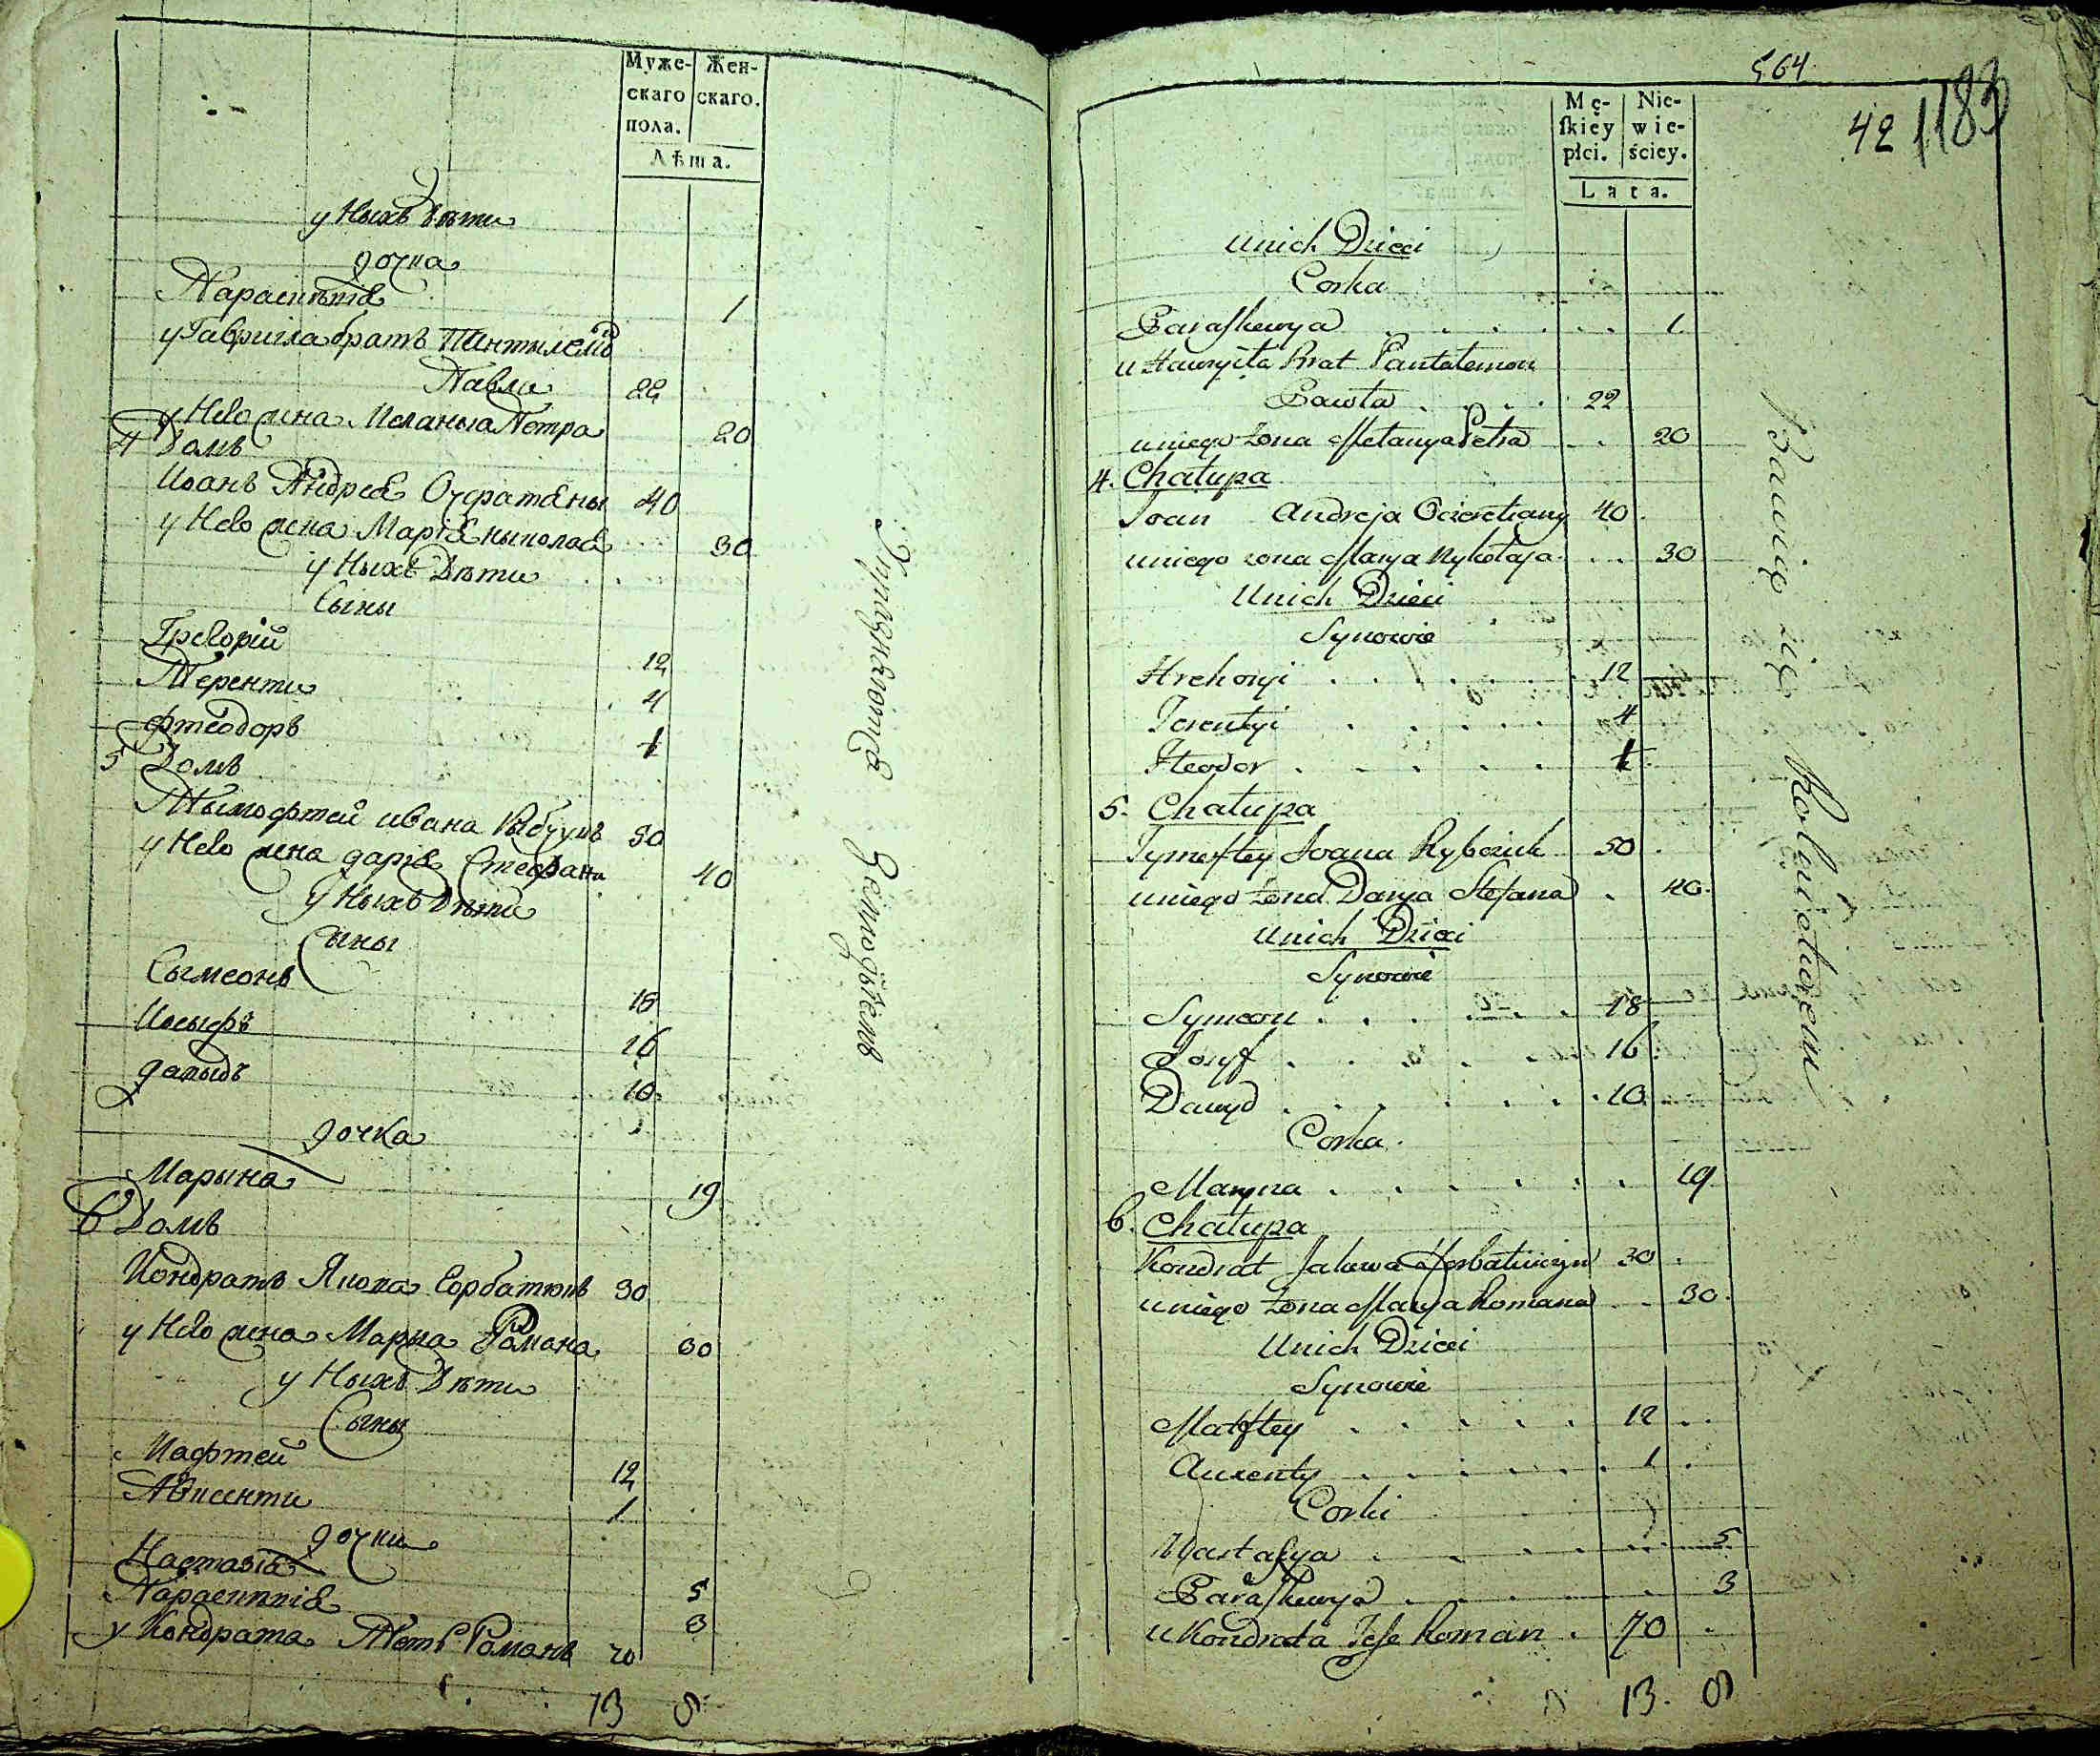 Муже-
скаго
пола.
Жен-
скаго.
Лѣта.
у Ныхъ дѣти
дочка
Параскѣвія 1
у Гаврила братъ Пантылемо
Павла 22
у Нево жена Меланыа Петра 20
4 Домъ
Иоанъ Андрея 40
у Нево жена Марія Ныколая 30
у Ныхъ Дѣти
Сыны
Грегорій 12
Теренти 4
Фтеодоръ 1
5 Домъ
Тымофтей ивана Рыбчукъ 50
у Нево жена дарія Стефана 40
у Ныхъ Дѣти
Сыны
Сымеонъ 18
Иосыфъ 16
давыдъ 10
дочка
Марына 19
6 Домъ
Кондратъ Якова Горбатюкъ 30
у Нево жена Марыа Романа 30
у Ныхъ Дѣти
Сыны
Мафтей 12
Авксенти 1
дочки
Настазія 5
Параскѣвія 3
у Кондрата Тесть Романъ 70
13 8
Упражняются Земледѣлиемъ
564
42 1183
Mę-
ſkiéy
płci.
Nie-
wie-
ściey.
Lata.
Unich Dzieci
Corka
Paraſkewya 1
u Hawryła Brat Pantalemon
Pawła 22
uniego żona Melanya Petra 20
4. Chałupa
Joan Andreja 40
uniego żona Marya Mykołaja 30
Unich Dzieci
Synowie
Hrehoryi 12
Terentyi 4
Fteodor 1
5. Chałupa
Tymoftey Joana Rybczuk 50
uniego żona Darya Stefana 40
Unich Dzieci
Synowie
Symeon 18
Josyf 16
Dawyd 10
Corka
Maryna 19
6. Chałupa
Kondrat Jakowa 30
uniego żona Marya Romana 30
Unich Dzieci
Synowie
Maftey 12
Auxenty 1
Corki
Nastasya 5
Paraſkewya 3
u Kondrata Teść Roman 70
13 8
Bawią się Rolnictwem